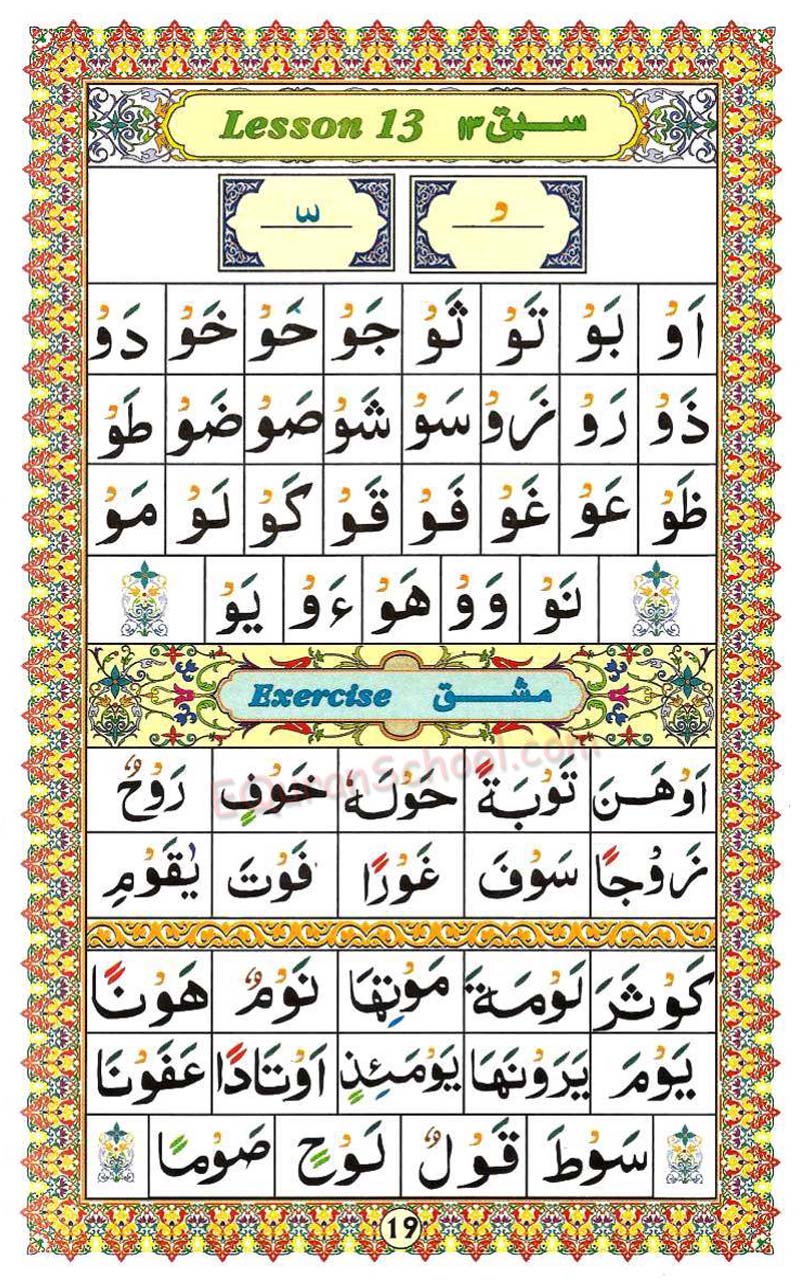 Lesson 13 سبق ۱۳
اَوْ بَوْ تَوْ ثَوْ جَوْ حَوْ خَوْ دَوْ
ذَوْ رَوْ زَوْ سَوْ شَوْ صَوْ ضَوْ طَوْ
ظَوْ عَوْ غَوْ فَوْ قَوْ كَوْ لَوْ مَوْ
نَوْ وَوْ هَوْ ءَوْ يَوْ
Exercise مشق
EQuranSchool.com
اَوْهَنَ تَوْبَةً حَوْلَهٗ خَوْفٍ رَوْحٌ
زَوْجًا سَوْفَ غَوْرًا فَوْتَ يٰقَوْمِ
كَوْثَرَ لَوْمَةَ مَوْتِهَا نَوْمٌ هَوْنًا
يَوْمَ يَرَوْنَهَا يَوْمَئِذٍ اَوْتَادًا عَفَوْنَا
سَوْطَ قَوْلٌ لَوْحٍ صَوْمًا
19